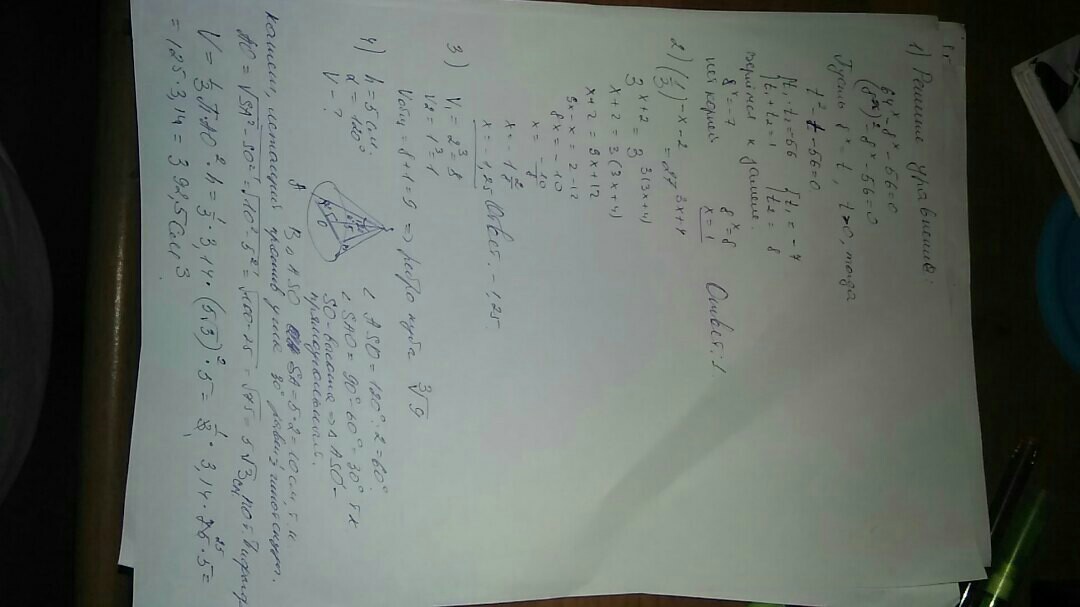 1) Решите уравнение:
64ˣ-8ˣ-56=0
(8ˣ)²-8ˣ-56=0
Пусть 8ˣ=t, t>0, тогда
t²-t-56=0
{t₁·t₂=-56 {t₁=-7
{t₁+t₂=1 {t₂=8
Вернёмся к замене.
8ˣ=-7 8ˣ=8
нет корней x=1 Ответ. 1
2) (1/3)-x-2=27 3x+4
3 x+2 = 3 3(3x+4)
x+2=3(3x+4)
x+2=9x+12
9x-x=2-12
8x=-10
x=-10/8
x=-1 2/8
x=-1,25 Ответ. -1,25.
3) V₁=2³=8
V₂=1³=1
Vобщ=8+1=9 => ребро куба ∛9
4) h=5см.
α=120°
V-?
∠ASO=120°:2=60°
∠SAO=90°-60°=30° т.к.
SO-высота => ∆ASO-
прямоугольный.
В ∆ASO SA=5·2=10см, т.к
катет, лежащий против угла 30° равен ½ гипотенузы.
AO=√SA²-SO²=√10²-5²=√100-25=√75=5√3см, по т. Пифагора
V=⅓πAO²·h=⅓·3,14·(5√3)²·5=⅓·3,14·75·5= 25
=125·3,14=392,5см³